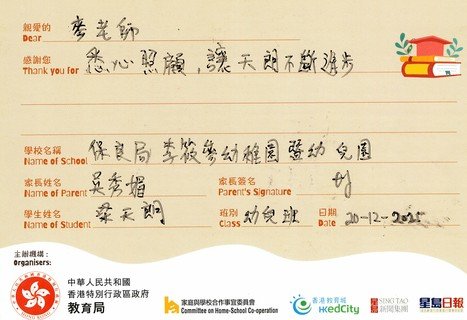 親愛的 麥老師
Dear
感謝您 悉心照顧，讓天朗不斷進步
Thank you for
學校名稱 保良局李筱麥幼稚園暨幼兒園
Name of School
家長姓名 吳秀媚 家長簽名
Name of Parent Parent's Signature
學生姓名 梁天朗 班別 幼兒班 日期 20-12-2025
Name of Student Class Date
主辦機構：
Organisers:
中華人民共和國
香港特別行政區政府
教育局
家庭與學校合作事宜委員會
Committee on Home-School Co-operation
香港教育城
HKedCity
星島 SING TAO
新聞集團
星島日報